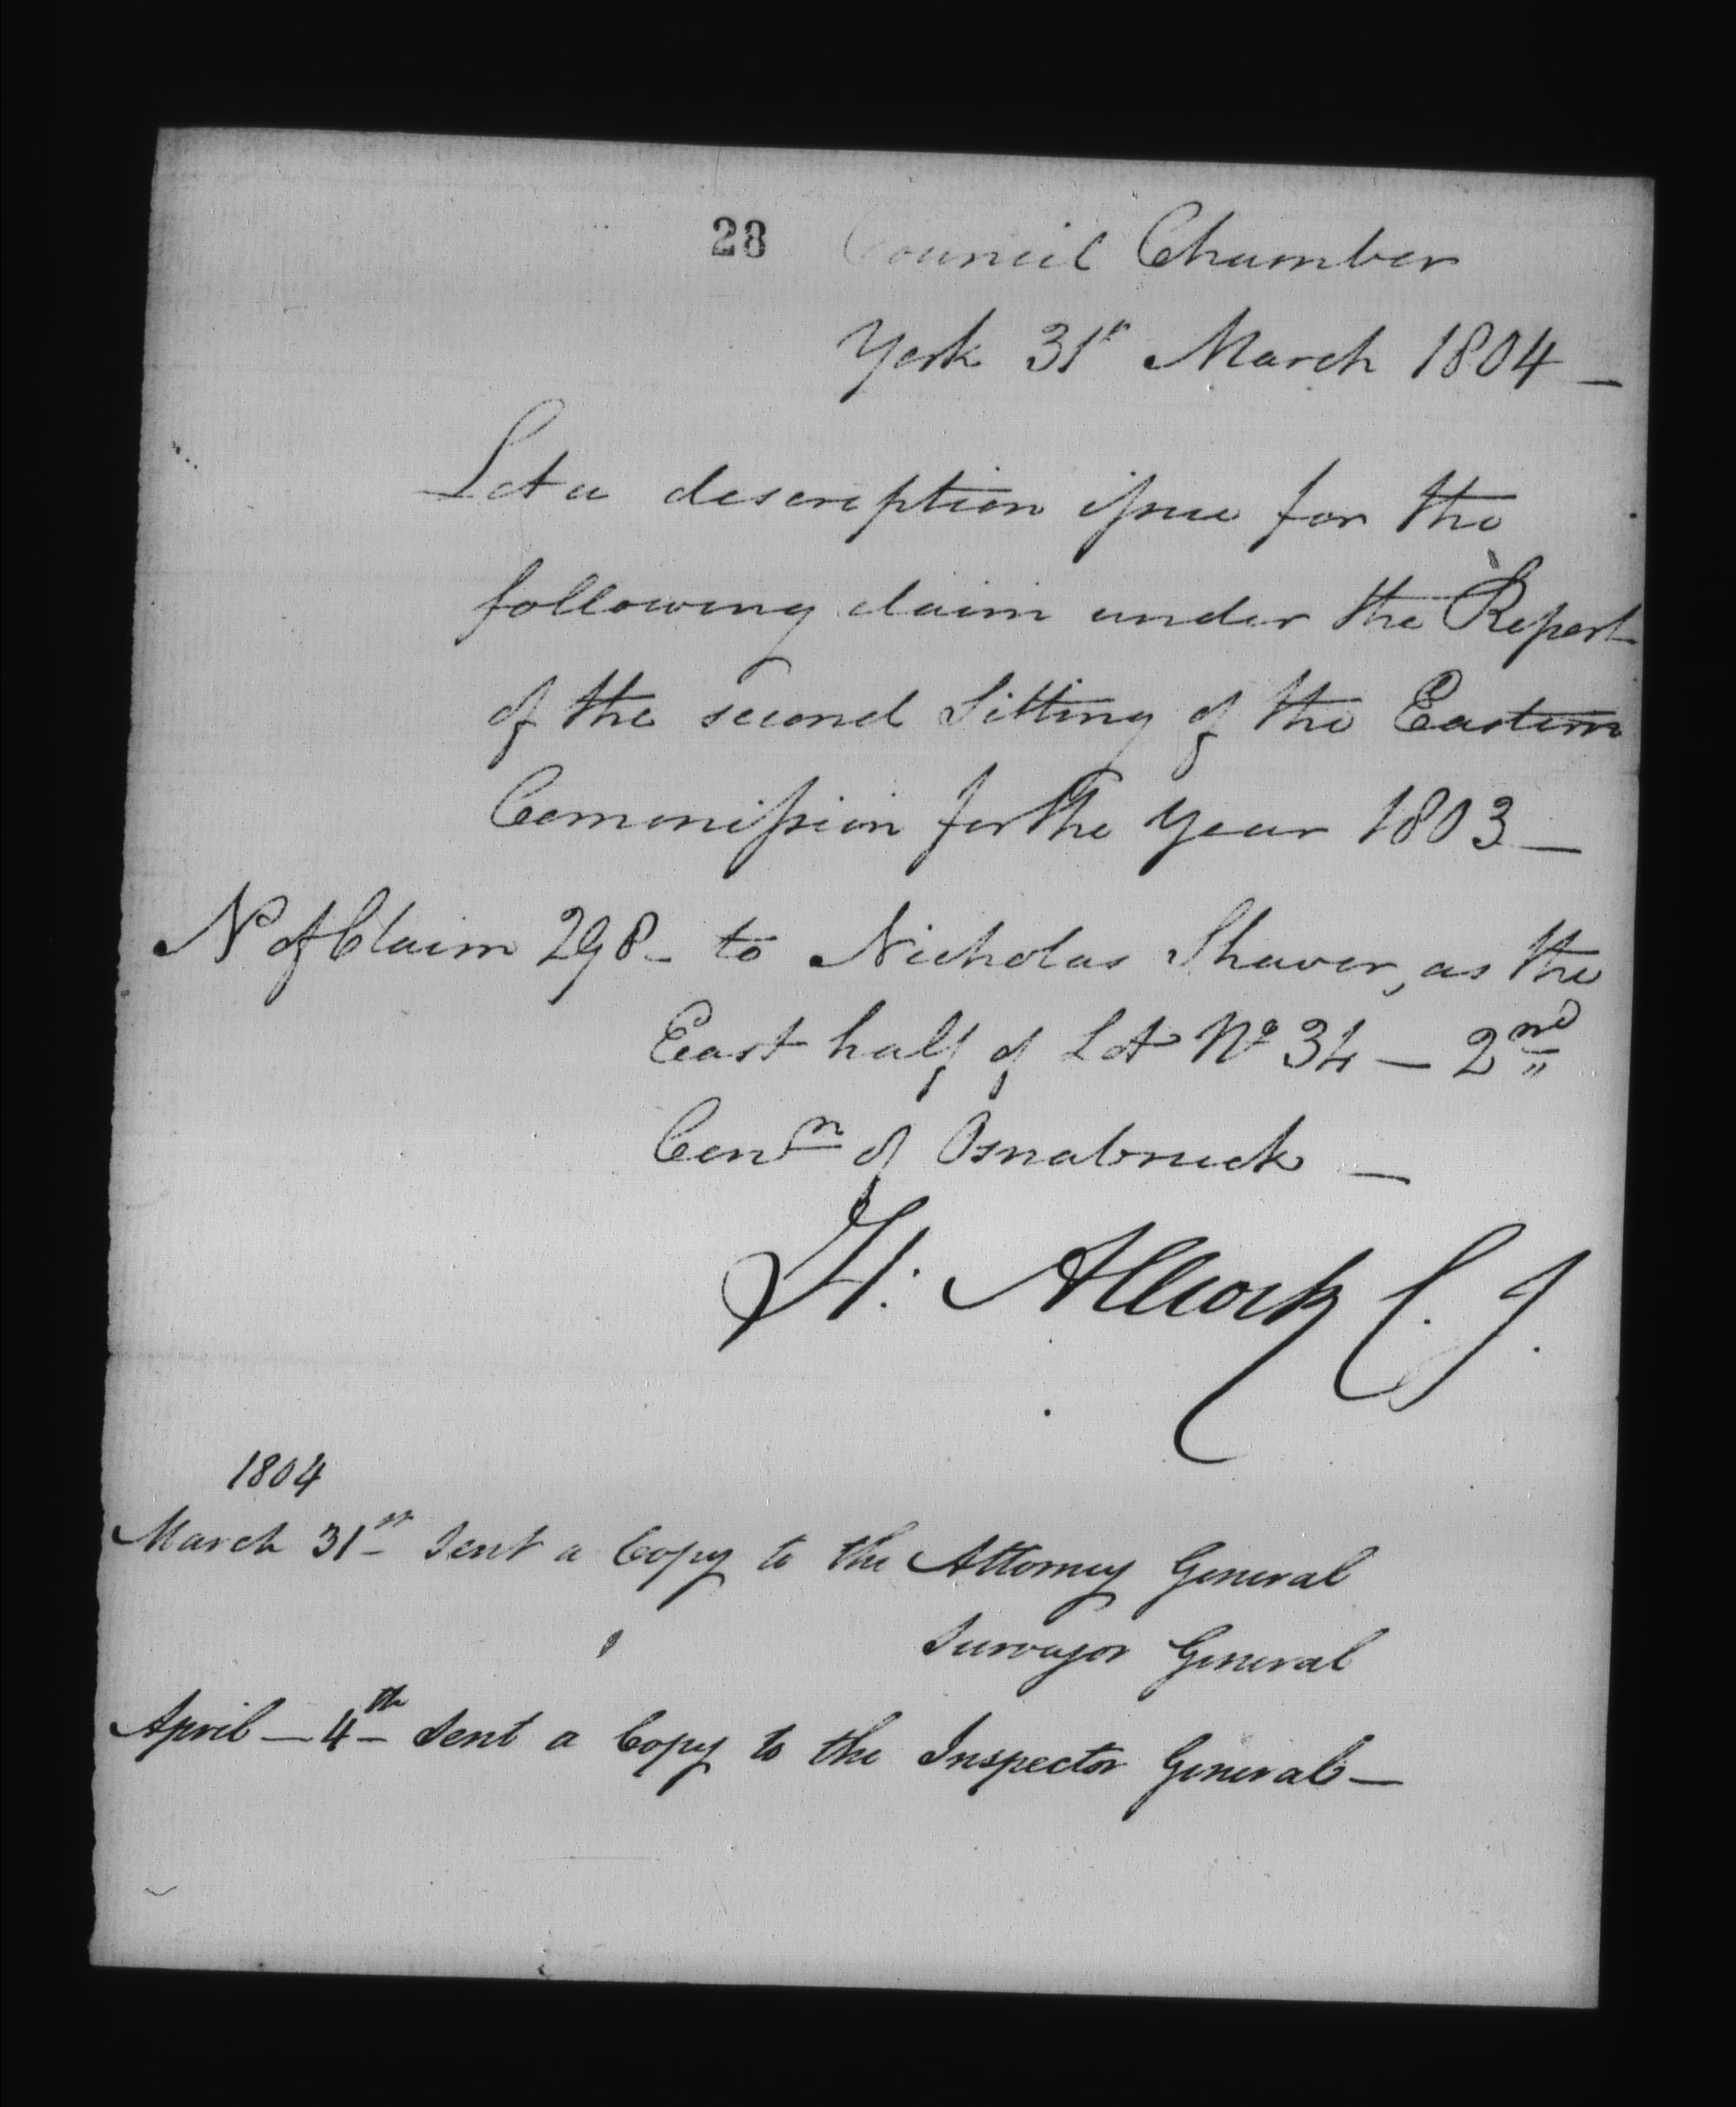 28 Council Chamber
York 31st March 1804 —
Let a description issue for the
following claim under the Report
of the second Sitting of the Eastern
Commission for the year 1803 —
No of Claim 298 — to Nicholas Shaver, as the
East half of Lot No 34 — 2nd
Conn of Osnabruck —
H. Allcock C. J.
1804
March 31st sent a Copy to the Attorney General
Surveyor General
April — 4th — sent a Copy to the Inspector General —